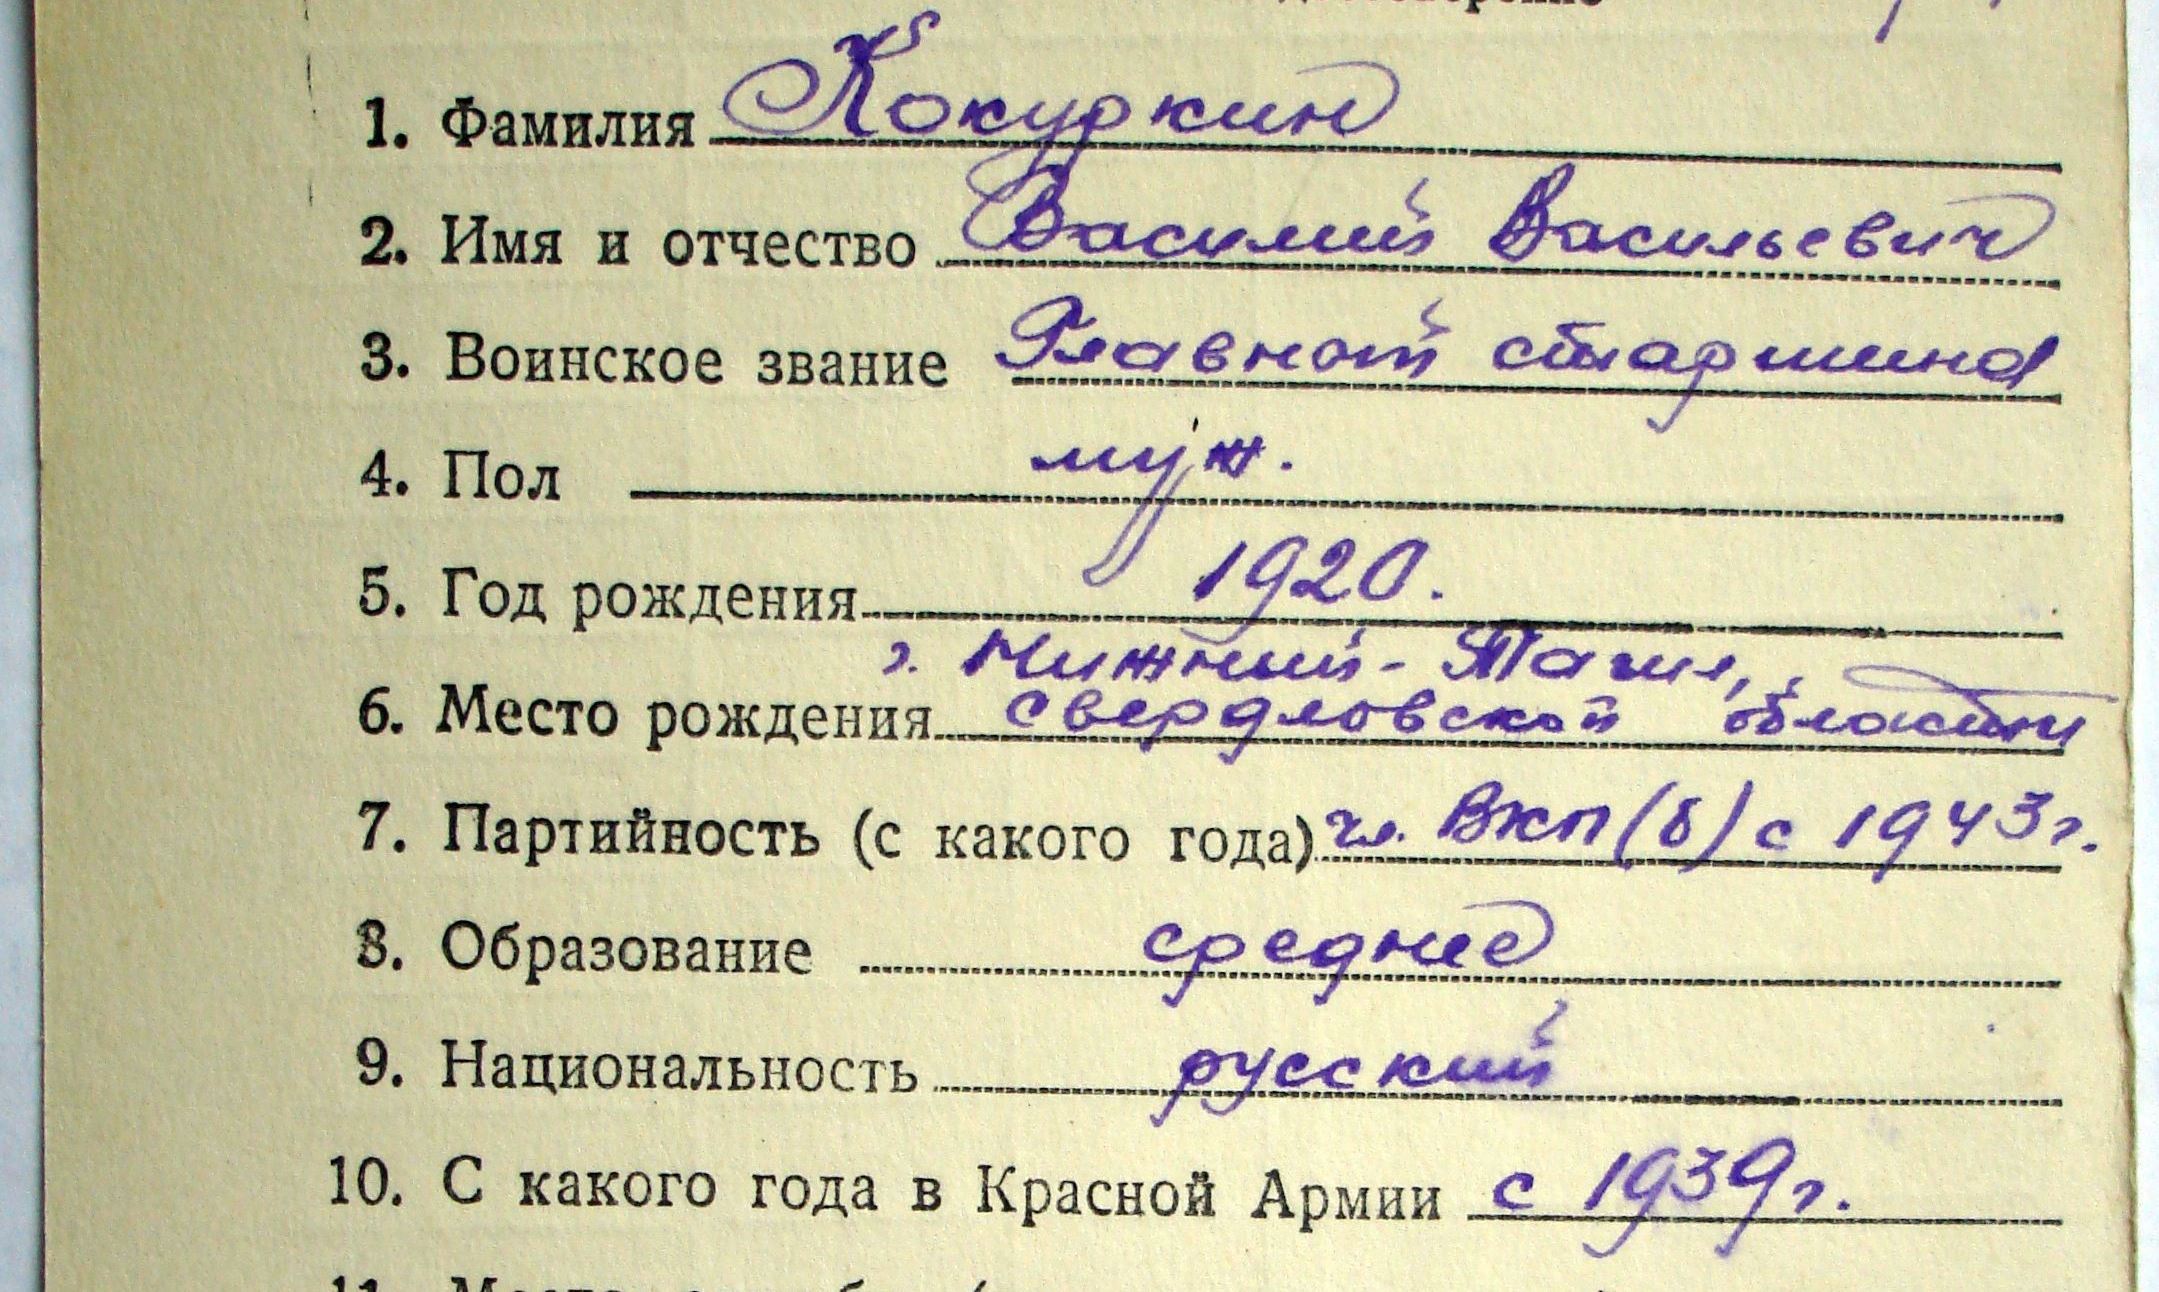 1. Фамилия Кокуркин
2. Имя и отчество Василий Васильевич
3. Воинское звание Главной старшина
4. Пол муж.
5. Год рождения 1920.
г. Нижний-Тагил,
6. Место рождения свердловской области
7. Партийность (с какого года) чл. ВКП(б) с 1943 г.
8. Образование среднее
9. Национальность русский
10. С какого года в Красной Армии с 1939 г.